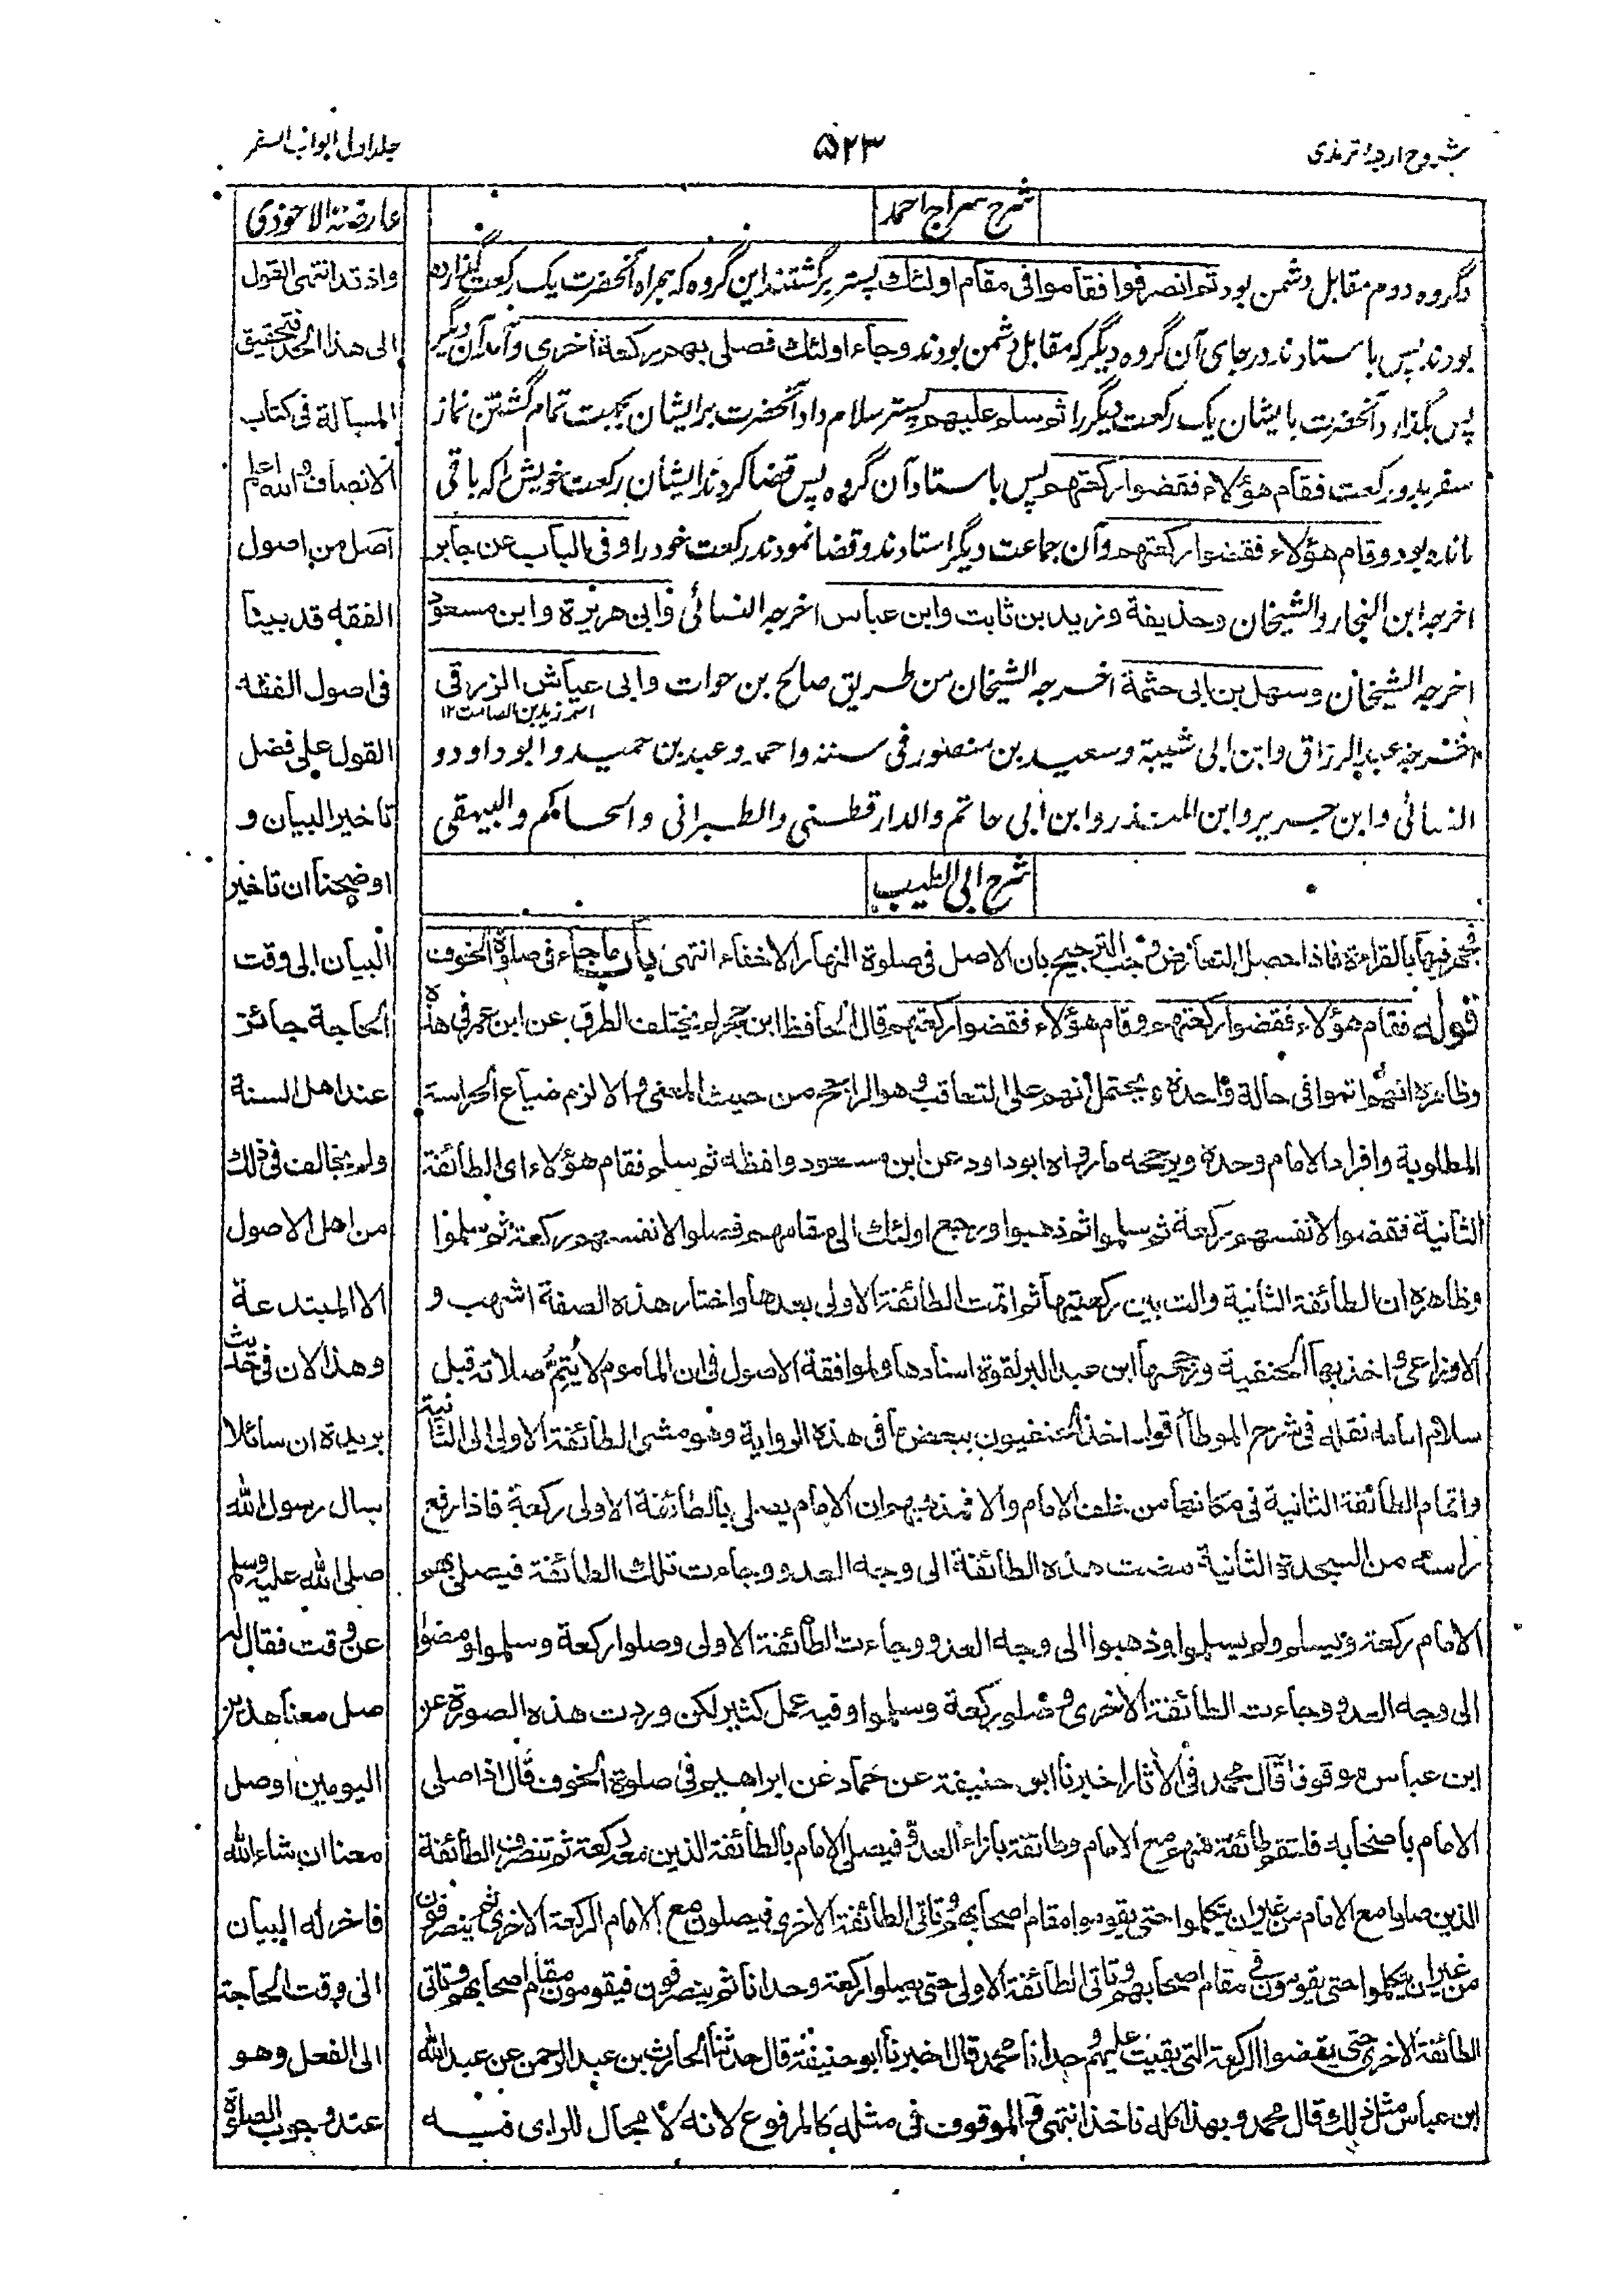 شروح اربعۂ ترمذی
۵۲۳
جلد اول ابواب السفر
شرح سراج احمد
وگروه دوم مقابل دشمن بود ثم انصرفوا فقاموا فی مقام اولئك پستر برگشتند این گروه که همراه آنحضرت یک رکعت گذارده
بودند پس باستادند در جای آن گروه دیگر که مقابل دشمن بودند وجاء اولئك فصلی بهم رکعة اخری وآمد آن دیگر
پس بگذارد آنحضرت با ایشان یک رکعت دیگر را ثم سلم علیهم پستر سلام داد آنحضرت بر ایشان بجهت تمام گشتن نماز
سفر بدو رکعت فقام هؤلاء فقضوا رکعتهم پس باستاد آن گروه پس قضا کردند ایشان رکعت خویش را که باقی
مانده بود وقام هؤلاء فقضوا رکعتهم وآن جماعت دیگر استادند وقضا نمودند رکعت خود را وفی الباب عن جابر
اخرجه ابن النجار والشیخان وحذیفة وزید بن ثابت وابن عباس اخرجه النسائی وابی هریرة وابن مسعود
اخرجه الشیخان وسهل بن ابی حثمة اخرجه الشیخان من طریق صالح بن خوات وابی عیاش الزرقی
اسمه زید بن الصامت ۱۲
اخرجه عبد الرزاق وابن ابی شیبة وسعید بن منصور فی سننه واحمد وعبد بن حمید وابو داود و
النسائی وابن جریر وابن المنذر وابن ابی حاتم والدارقطنی والطبرانی والحاکم والبیهقی
شرح ابی الطیب
یجهر فیها بالقراءة فاذا حصل التعارض وجب الترجیح بان الاصل فی صلوة النهار الاخفاء انتهی باب ماجاء فی صلوة الخوف
قوله فقام هؤلاء فقضوا رکعتهم وقام هؤلاء فقضوا رکعتهم قال الحافظ ابن حجر لم یختلف الطرق عن ابن عمر فی هذه
وظاهره انهم اتموا فی حالة واحدة ویحتمل انهم علی التعاقب وهو الراجح من حیث المعنی والا لزم ضیاع الحراسة
المطلوبة وافراد الامام وحده ویرجحه ما رواه ابو داود عن ابن مسعود ولفظه ثم سلم فقام هؤلاء ای الطائفة
الثانیة فقضوا لانفسهم رکعة ثم سلموا ثم ذهبوا ورجع اولئك الی مقامهم فصلوا لانفسهم رکعة ثم سلموا
وظاهره ان الطائفة الثانیة والت بین رکعتیها ثم اتمت الطائفة الاولی بعدها واختار هذه الصفة اشهب و
الاوزاعی واخذ بها الحنفیة ورجحها ابن عبد البر لقوة اسنادها ولموافقة الاصول فی ان الماموم لا یتم صلاته قبل
سلام امامه نقله فی شرح الموطأ اقول اخذ الحنفیون ببعض ما فی هذه الروایة وهو مشی الطائفة الاولی الی الثانیة
واتمام الطائفة الثانیة فی مکانها من خلف الامام والا فمذهبهم ان الامام یصلی بالطائفة الاولی رکعة فاذا رفع
رأسه من السجدة الثانیة مضت هذه الطائفة الی وجه العدو وجاءت تلك الطائفة فیصلی بهم
الامام رکعة ویسلم ولم یسلموا وذهبوا الی وجه العدو وجاءت الطائفة الاولی وصلوا رکعة وسلموا ومضوا
الی وجه العدو وجاءت الطائفة الاخری وصلی رکعة وسلموا وفیه عمل کثیر لکن وردت هذه الصورة عن
ابن عباس موقوفا قال محمد فی الآثار اخبرنا ابو حنیفة عن حماد عن ابراهیم فی صلوة الخوف قال اذا صلی
الامام باصحابه فلتقم طائفة منهم مع الامام وطائفة بازاء العدو فیصلی الامام بالطائفة الذین معه رکعة ثم تنصرف الطائفة
الذین صلوا مع الامام من غیر ان یتکلموا حتی یقوموا مقام اصحابهم وتاتی الطائفة الاخری فیصلون مع الامام الرکعة الاخری ثم ینصرفون
من غیر ان یتکلموا حتی یقومون فی مقام اصحابهم وتاتی الطائفة الاولی حتی یصلوا رکعة وحدانا ثم ینصرفون فیقومون مقام اصحابهم وتاتی
الطائفة الاخری حتی یقضوا الرکعة التی بقیت علیهم وحدانا محمد قال اخبرنا ابو حنیفة قال حدثنا الحارث بن عبد الرحمن عن عبد الله
ابن عباس مثل ذلك وقال محمد وبهذا کله ناخذ انتهی والموقوف فی مثله کالمرفوع لانه لا مجال للرای فیه
عارضة الاحوذی
واذ قد انتهی القول
الی هذا الحد فتحقیق
المسألة فی کتاب
الانصاف والله اعلم
اصل من اصول
الفقه قد بینا
فی اصول الفقه
القول علی فضل
تاخیر البیان و
اوضحنا ان تاخیر
البیان الی وقت
الحاجة جائز
عند اهل السنة
ولم یخالف فی ذلك
من اهل الاصول
الا المبتدعة
وهذا الان فی حدیث
بریدة ان سائلا
سال رسول الله
صلی الله علیه وسلم
عن وقت فقال له
صل معنا هذین
الیومین او صل
معنا ان شاء الله
فاخر له البیان
الی وقت الحاجة
الی الفعل وهو
عند وجوب الصلوة